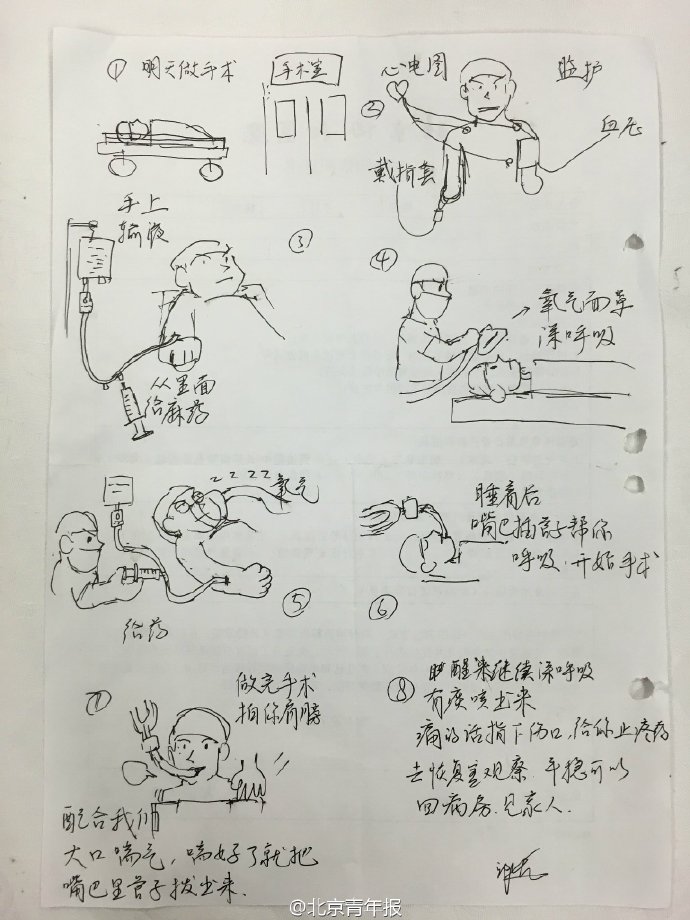 ① 明天做手术
手术室
② 心电图
监护
血压
戴指套
③ 手上
输液
从里面
给麻药
④ → 氧气面罩
深呼吸
⑤ zzzz 氧气
给药
⑥ 睡着后
嘴巴插管子帮你
呼吸.开始手术
⑦ 做完手术
拍你肩膀
配合我们
大口喘气，喘好了就把
嘴巴里管子拔出来.
⑧ 醒来继续深呼吸
有痰咳出来
痛的话指下伤口，给你止疼药
去恢复室观察.平稳可以
回病房.见家人.
@北京青年报